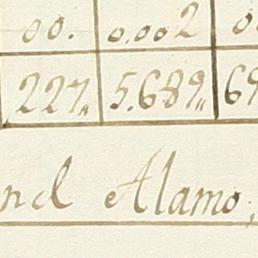 00. 0.002
227,, 5.689,, 69
ncl Alamo,